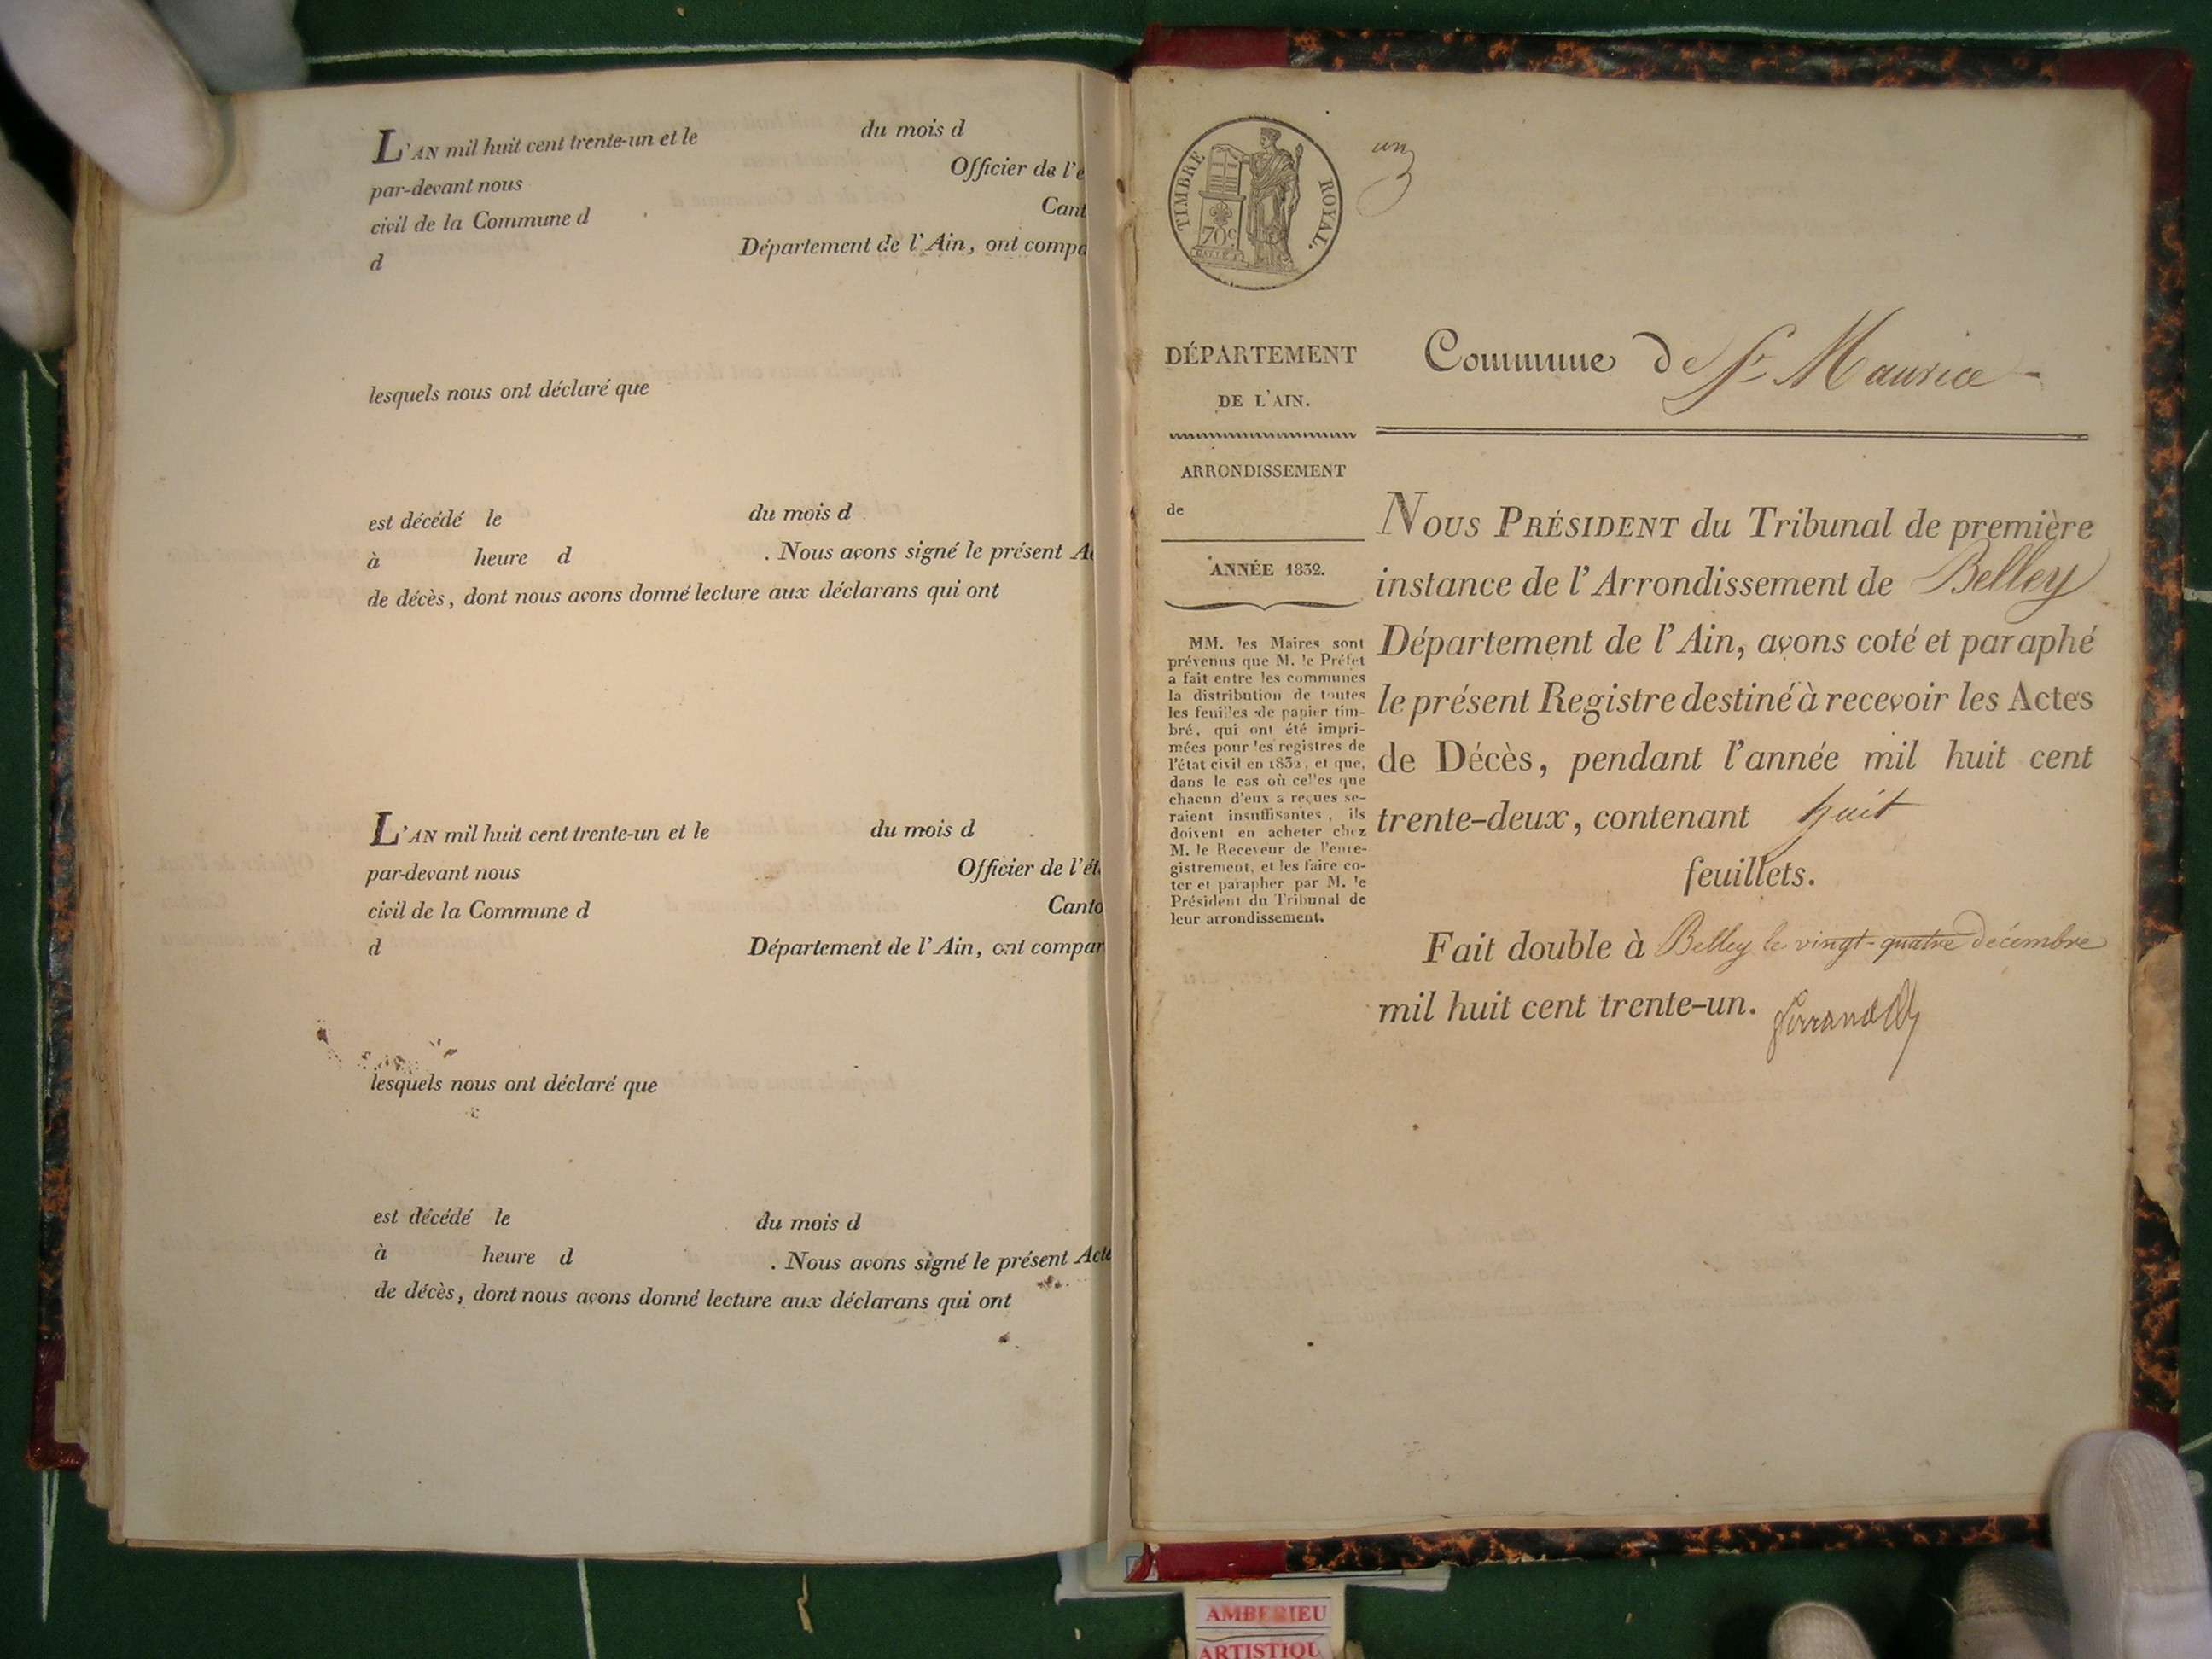 L'AN mil huit cent trente-un et le du mois d
par-devant nous Officier de l'é
civil de la Commune d Cant
d Département de l'Ain, ont compa
lesquels nous ont déclaré que
est décédé le du mois d
à heure d . Nous avons signé le présent Ac
de décès, dont nous avons donné lecture aux déclarans qui ont
L'AN mil huit cent trente-un et le du mois d
par-devant nous Officier de l'ét
civil de la Commune d Canto
d Département de l'Ain, ont compar
lesquels nous ont déclaré que
est décédé le du mois d
à heure d . Nous avons signé le présent Acte
de décès, dont nous avons donné lecture aux déclarans qui ont
TIMBRE ROYAL.
70c
un
DÉPARTEMENT
DE L'AIN.
ARRONDISSEMENT
de
ANNÉE 1832.
MM. les Maires sont
prévenus que M. le Préfet
a fait entre les communes
la distribution de toutes
les feuilles de papier tim-
bré, qui ont été impri-
mées pour les registres de
l'état civil en 1832, et que,
dans le cas où celles que
chacun d'eux a reçues se-
raient insuffisantes, ils
doivent en acheter chez
M. le Receveur de l'enre-
gistrement, et les faire co-
ter et parapher par M. le
Président du Tribunal de
leur arrondissement.
Commune de St Maurice
NOUS PRÉSIDENT du Tribunal de première
instance de l'Arrondissement de Belley
Département de l'Ain, avons coté et paraphé
le présent Registre destiné à recevoir les Actes
de Décès, pendant l'année mil huit cent
trente-deux, contenant huit
feuillets.
Fait double à Belley le vingt-quatre décembre
mil huit cent trente-un.
AMBERIEU
ARTISTIQU